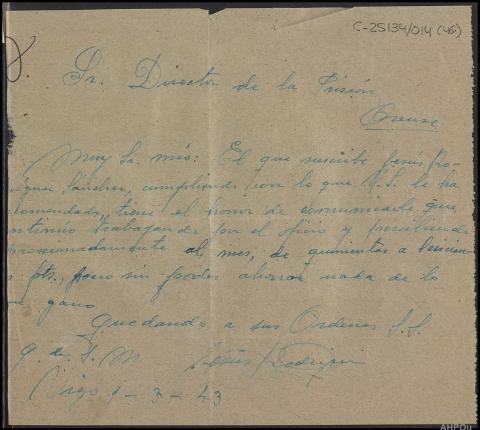 C-25134/014 (46)
Sr. Director de la Prisión
Orense
Muy Sr. mio: El que suscribe Jesús Ro-
iguez Sánchez, cumpliendo con lo que V.S. le ha
comendado, tiene el honor de comunicarle que
ntinuo trabajando con el oficio y percibiendo
proximadamente al mes, de quinientas a seiscien
s pts., pero sin poder ahorrar nada de lo
ue gano
Quedando a sus Ordenes S.S.
q. e. S. M Jesús Rodriguez
Vigo 1 - 3 - 43
AHPOu